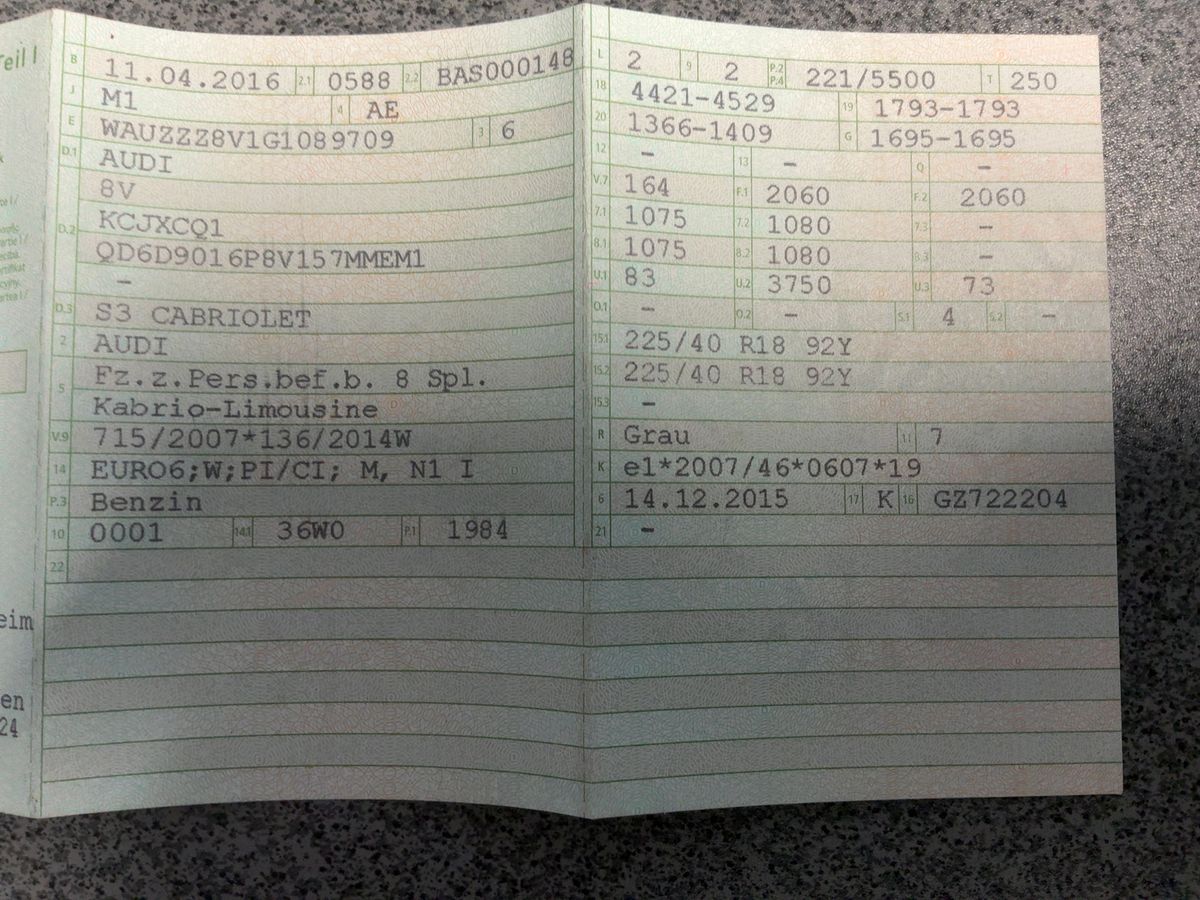 Teil I
B 11.04.2016 2.1 0588 2.2 BAS000148
J M1 4 AE
E WAUZZZ8V1G1089709 3 6
D.1 AUDI
8V
D.2 KCJXCQ1
QD6D9016P8V157MMEM1
–
D.3 S3 CABRIOLET
2 AUDI
5 Fz.z.Pers.bef.b. 8 Spl.
Kabrio-Limousine
V.9 715/2007*136/2014W
14 EURO6;W;PI/CI; M, N1 I
P.3 Benzin
10 0001 14.1 36W0 P.1 1984
22
L 2 9 2 P.2 P.4 221/5500 T 250
18 4421-4529 19 1793-1793
20 1366-1409 G 1695-1695
12 – 13 – Q –
V.7 164 F.1 2060 F.2 2060
7.1 1075 7.2 1080 7.3 –
8.1 1075 8.2 1080 8.3 –
U.1 83 U.2 3750 U.3 73
O.1 – O.2 – S.1 4 S.2 –
15.1 225/40 R18 92Y
15.2 225/40 R18 92Y
15.3 –
R Grau 11 7
K e1*2007/46*0607*19
6 14.12.2015 17 K 16 GZ722204
21 –
eim
en
24